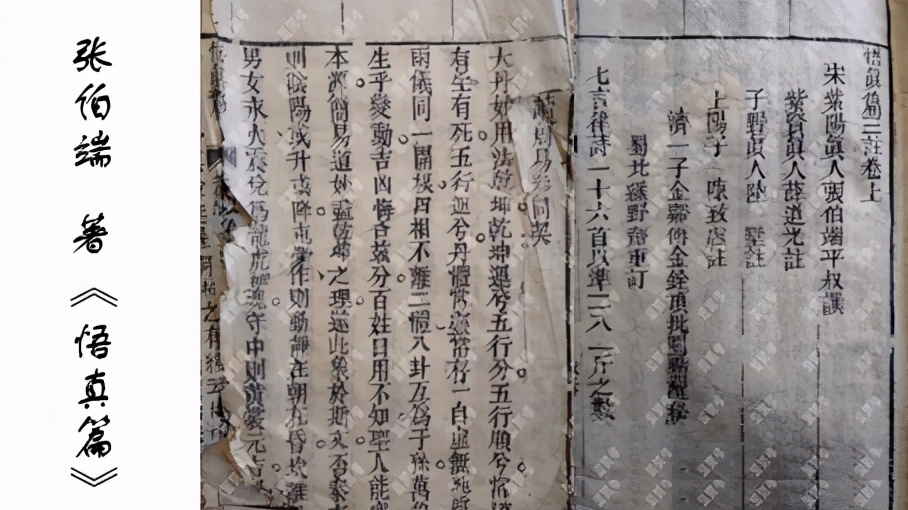 张伯端 著《悟真篇》
悟眞篇三註卷上
宋紫陽眞人張伯端平叔譔
紫賢眞人薛道光註
子野眞人陸 墅註
上陽子 陳致虛註
濟一子金谿傅金銓頂批圈點
蜀北 野 重訂
七言律詩一十六首以準二八一斤之數
讀周易參同契
大丹妙用法乾坤乾坤運兮五行分五行順兮常
有生有死五行逆兮丹體常靈常存一自虛無
兩儀同一開根四相不離二體八卦互爲子孫萬
生乎變動吉凶悔吝兹分百姓日用不知聖人能
本源顧易道妙盡乾坤之理遂託象於斯文否泰
則陰陽或升或降屯蒙作則動靜在朝在昏坎離
男女水火震兌乃龍虎魄魂守中則黃裳元吉